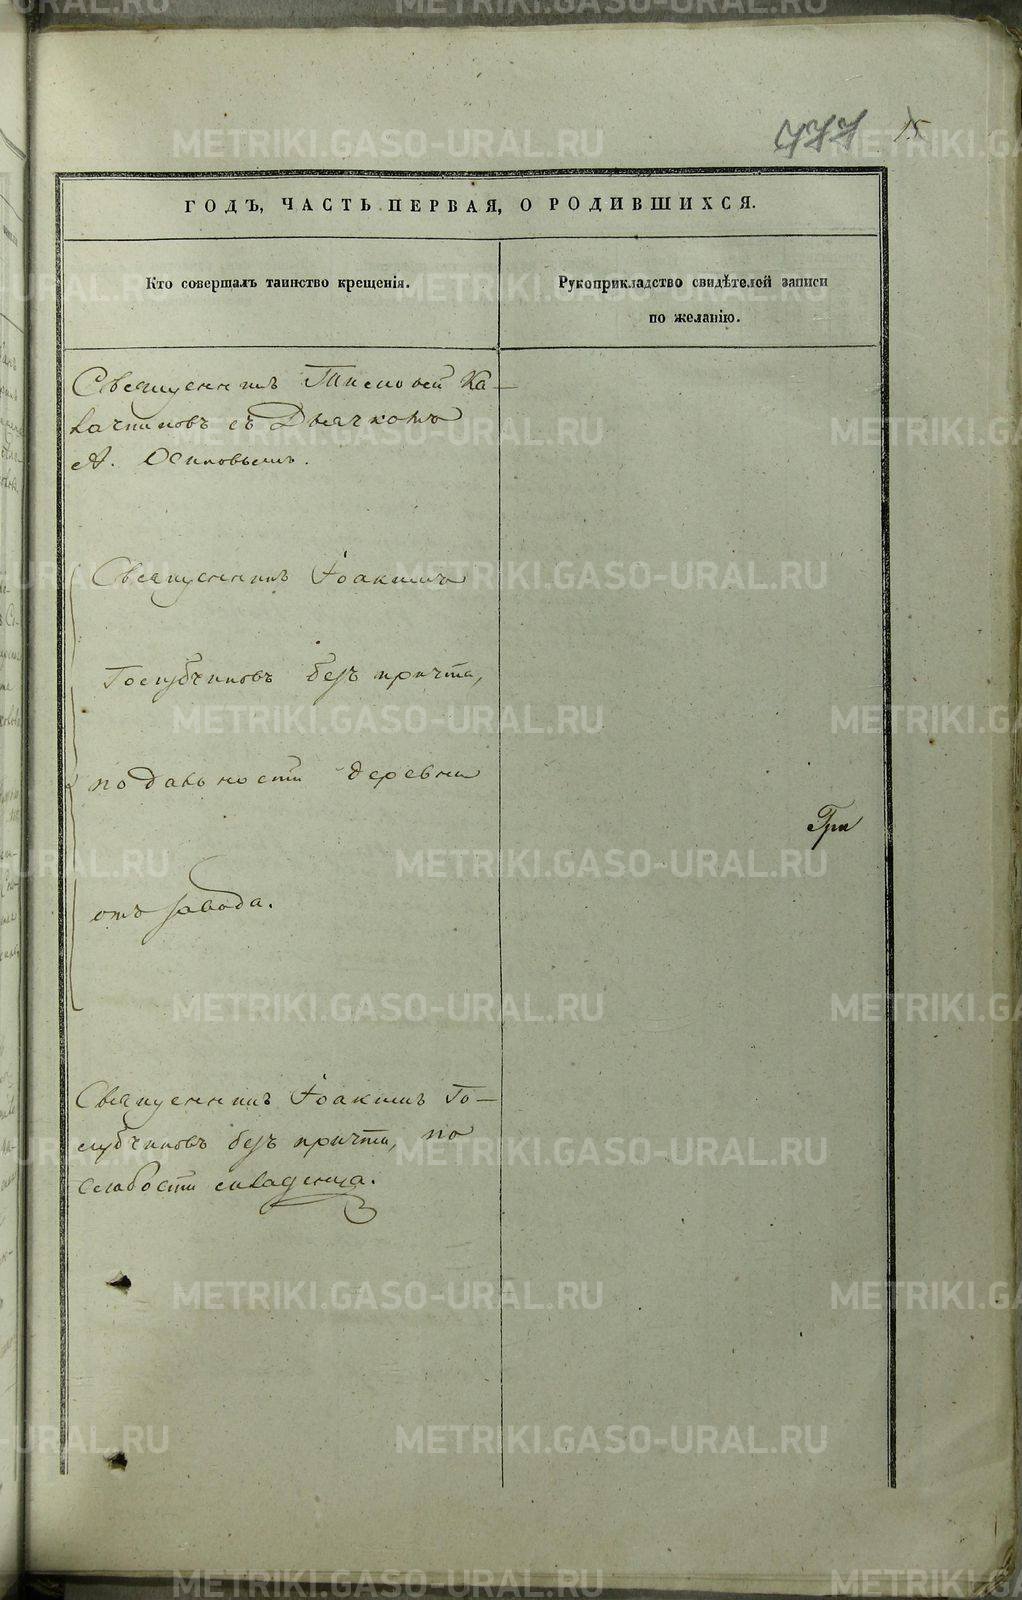 777 15
ГОДЪ, ЧАСТЬ ПЕРВАЯ, О РОДИВШИХСЯ.
Кто совершалъ таинство крещенія.
Рукоприкладство свидѣтелей записи
по желанію.
Священникъ Тимофей Ка-
лачниковъ съ Дьячкомъ
А. Осиповымъ.
Священникъ Іоакимъ
Голубчиковъ безъ причта,
по дальности деревни
отъ завода.
Гри
Священникъ Іоакимъ Го-
лубчиковъ безъ причта, по
слабости младенца.
METRIKI.GASO-URAL.RU